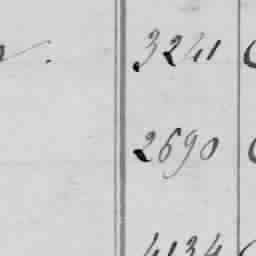 3241
2690
4134